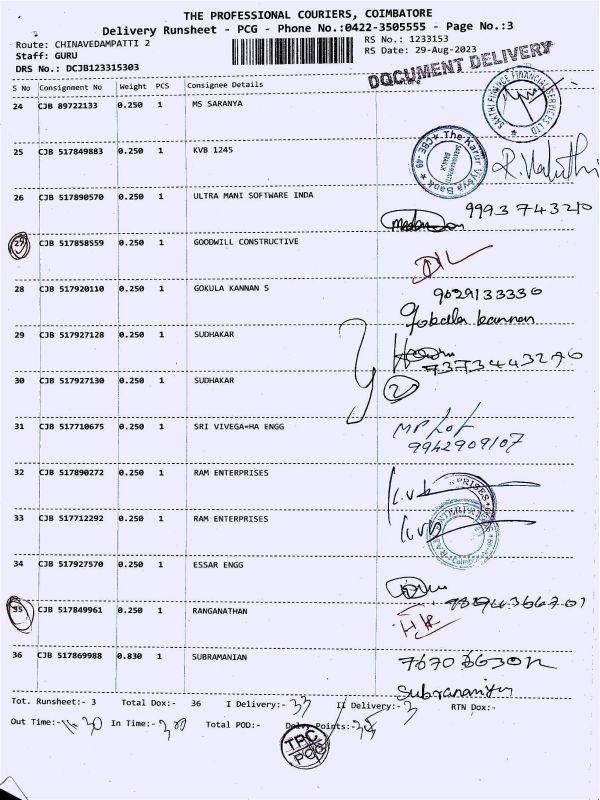 THE PROFESSIONAL COURIERS, COIMBATORE
Delivery Runsheet - PCG - Phone No.:0422-3505555 - Page No.:3
Route: CHINAVEDAMPATTI 2
RS No.: 1233153
Staff: GURU
RS Date: 29-Aug-2023
DRS No.: DCJB123315303
DOCUMENT DELIVERY
S No Consignment No Weight PCS Consignee Details
24 CJB 89722133 0.250 1 MS SARANYA
SAKTHI FINANCE FINANCIAL SERVICES LTD
25 CJB 517849883 0.250 1 KVB 1245
The Karur Vysya Bank ★ CBE-49 ★
26 CJB 517890570 0.250 1 ULTRA MANI SOFTWARE INDA
9993743210
27 CJB 517858559 0.250 1 GOODWILL CONSTRUCTIVE
28 CJB 517920110 0.250 1 GOKULA KANNAN S
9629133330
Gokula kannan
29 CJB 517927128 0.250 1 SUDHAKAR
30 CJB 517927130 0.250 1 SUDHAKAR
2
31 CJB 517710675 0.250 1 SRI VIVEGA=HA ENGG
9942909107
32 CJB 517890272 0.250 1 RAM ENTERPRISES
33 CJB 517712292 0.250 1 RAM ENTERPRISES
34 CJB 517927570 0.250 1 ESSAR ENGG
35 CJB 517849961 0.250 1 RANGANATHAN
36 CJB 517869988 0.830 1 SUBRAMANIAN
Subramaniyan
Tot. Runsheet:- 3 Total Dox:- 36 I Delivery:- 33 II Delivery:- 3 RTN Dox:-
Out Time:- 11.30 In Time:- 3.00 Total POD:- Delvy Points:-
TPC
PCG